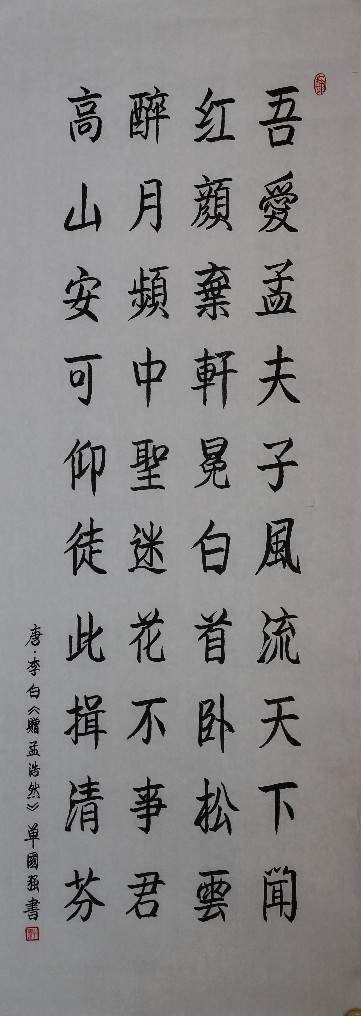 吾愛孟夫子風流天下聞
红顔棄軒冕白首卧松雲
醉月頻中聖迷花不事君
高山安可仰徒此揖清芬
唐·李白《贈孟浩然》單國强書